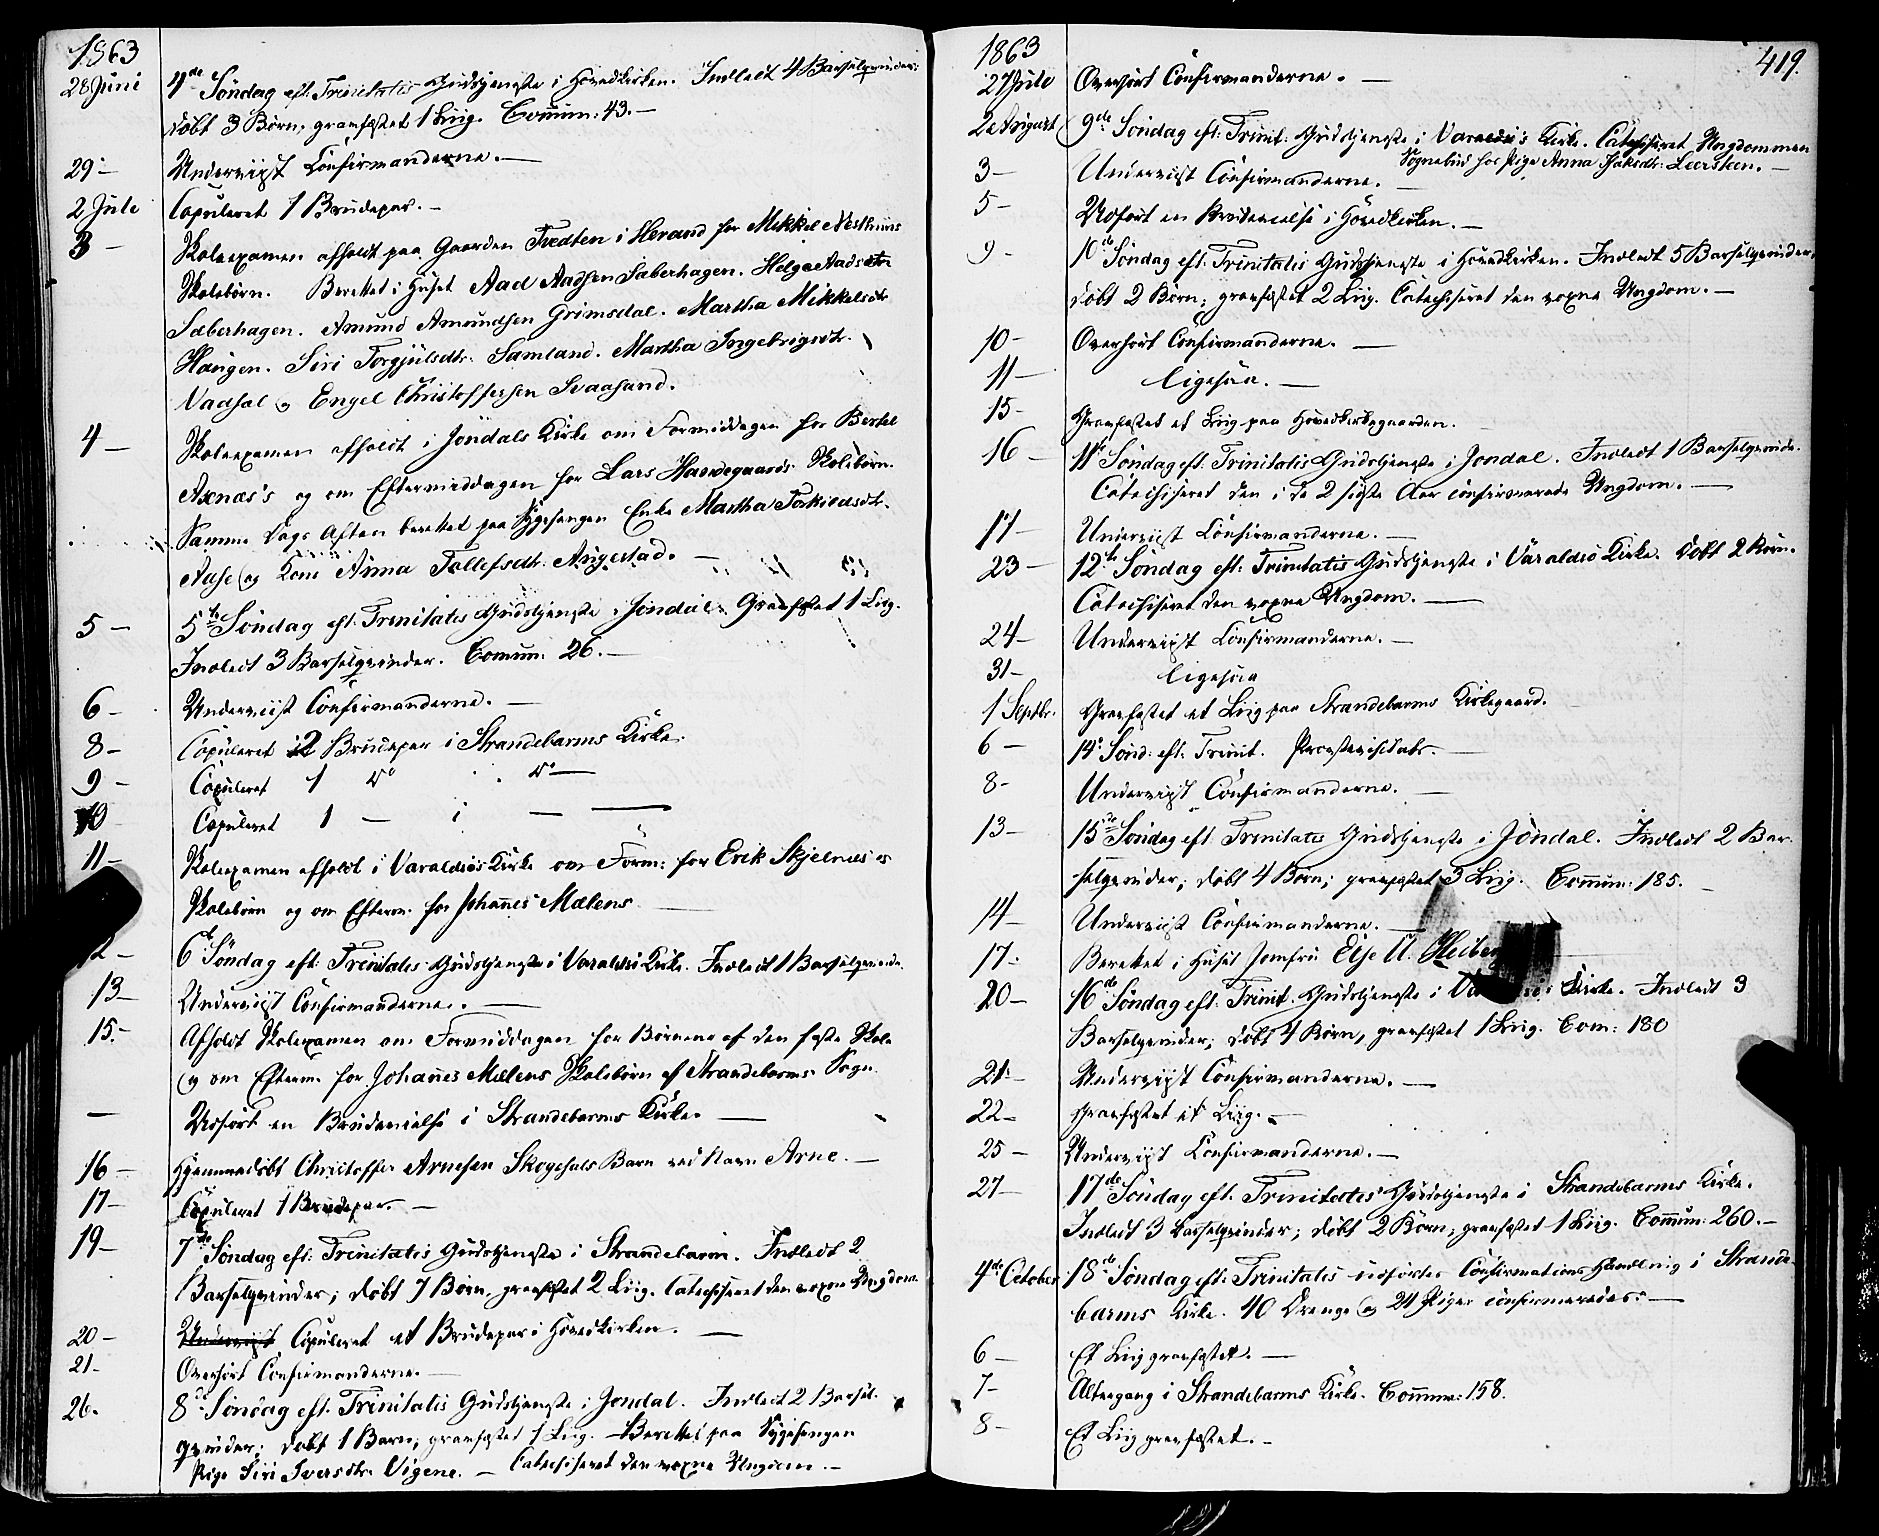 1863
28 Juni 4de Søndag eft: Trinitatis Gudstjeneste i Hovedkirken. Indledt 4 Barselqvinder;
døbt 3 Børn, gravfæstet 1 Liig. Commun: 43. —
29 — Underviist Confirmanderne. —
2 Juli Copuleret 1 Brudepar. —
3 — Skoleexamen afholdt paa Gaarden Tvedten i Herand for Mikkel Nesthuus
Skolebørn. Berettet i Huset Aad Aadsen Sæberhagen. Helga Aadsdtr
Sæberhagen. Amund Amundsen Grimsdal. Martha Mikkelsdtr
Haugen. Siri Torgjulsdtr: Samland. Martha Ingebrigtsdtr.
Vadsel og Engel Christoffersen Svaasand.
4 — Skoleexamen afholdt i Jondals Kirke om Formiddagen for Bertel
Axnæs's og om Eftermiddagen for Lars Haavegaards Skolebørn.
Samme Dags Aften berettet paa Sygesengen Enke Martha Torkildsdtr.
Aase og Kone Anna Tollefsdtr. Augestad. —
5 — 5te Søndag eft: Trinitatis Gudstjeneste i Jondal. Gravfæstet 1 Liig.
Indledt 3 Barselqvinder. Commun: 26. —
6 — Underviist Confirmanderne. —
8 — Copuleret 2 Brudepar i Strandebarms Kirke.
9 — Copuleret 1 do do —
10 Copuleret 1 — i — —
11 — Skoleexamen afholdt i Varaldsøs Kirke om Form: for Erik Skjelnæs's
Skolebørn og om Efterm. for Johannes Mælens —
12 — 6te Søndag eft: Trinitatis Gudstjeneste i Varaldsø Kirke. Indledt 1 Barselqvinde.
13 — Underviist Confirmanderne. —
15. — Afholdt Skoleexamen om Formiddagen for Børnene af den faste Skole
og om Efterm. for Johannes Mælens Skolebørn af Strandebarms Sogn.
— Udført en Brudevielse i Strandebarms Kirke. —
16 — Hjemmedøbt Christoffer Arnesen Skogesals Barn ved Navn Arne. —
17 — Copuleret 1 Brudepar. —
19 — 7de Søndag eft: Trinitatis Gudstjeneste i Strandebarm. Indledt 2
Barselqvinder; døbt 7 Børn, gravfæstet 2 Liig. Catechiseret den voxne Ungdom.
20 — Underviist Copuleret et Brudepar i Hovedkirken. —
21 — Overhørt Confirmanderne. —
26. 8de Søndag eft. Trinitatis Gudstjeneste i Jondal. Indledt 2 Barsel-
qvinder; døbt 1 Barn; gravfæstet 1 Liig. Berettet paa Sygesengen
Pige Siri Iversdtr. Vigene. — Catechiseret den voxne Ungdom. —
1863 419.
27 Juli Overhørt Confirmanderne. —
2 August 9de Søndag eft: Trinit: Gudstjeneste i Varaldsøs Kirke. Catechiseret Ungdommen
Sognebud hos Pige Anna Leersteen. —
3 — Underviist Confirmanderne. —
5 — Udført en Brudevielse i Hovedkirken. —
9 — 10de Søndag eft: Trinitatis Gudstjeneste i Hovedkirken. Indledt 5 Barselqvinder,
døbt 2 Børn; gravfæstet 2 Liig. Catechiseret den voxne Ungdom. —
10 — Overhørt Confirmanderne. —
11 — ligesaa. —
15 — Gravfæstet et Liig paa Hovedkirkegaarden.
16 — 11te Søndag eft. Trinitatis Gudstjeneste i Jondal. Indledt 1 Barselqvinde.
Catechiseret den i de 2 sidste Aar confirmerede Ungdom. —
17 — Underviist Confirmanderne. —
23 — 12te Søndag eft: Trinitatis Gudstjeneste i Varaldsø Kirke. Døbt 2 Børn.
Catechiseret den voxne Ungdom. —
24 — Underviist Confirmanderne. —
31 — ligesaa
1 Septbr. Gravfæstet et Liig paa Strandebarms Kirkegaard.
6 — 14de Sønd: eft. Trinit. Provstevisitats. —
8 — Underviist Confirmanderne. —
13 — 15de Søndag eft. Trinitatis Gudstjeneste i Jondal. Indledt 2 Bar-
selqvinder; døbt 4 Børn; gravfæstet 3 Liig. Commun: 185. —
14 — Underviist Confirmanderne. —
17. Berettet i Huset Jomfru Else U. Heiberg
20 — 16de Søndag eft. Trinit. Gudstjeneste i Kirke. Indledt 3
Barselqvinder; døbt 4 Børn, gravfæstet 1 Liig. Com: 180
21 — Underviist Confirmanderne. —
22 — Gravfæstet et Liig. —
25 — Underviist Confirmanderne. —
27 — 17de Søndag eft. Trinitatis Gudstjeneste i Strandebarms Kirke.
Indledt 3 Barselqvinder; døbt 2 Børn; gravfæstet 1 Liig. Commun: 260. —
4de October 18de Søndag eft: Trinitatis udførtes Confirmations Handling i Strande-
barms Kirke. 40 Drenge og 24 Piger confirmeredes. —
6 — Et Liig gravfæstet. —
7 — Altergang i Strandebarms Kirke. Commun: 158.
8 — Et Liig gravfæstet. —